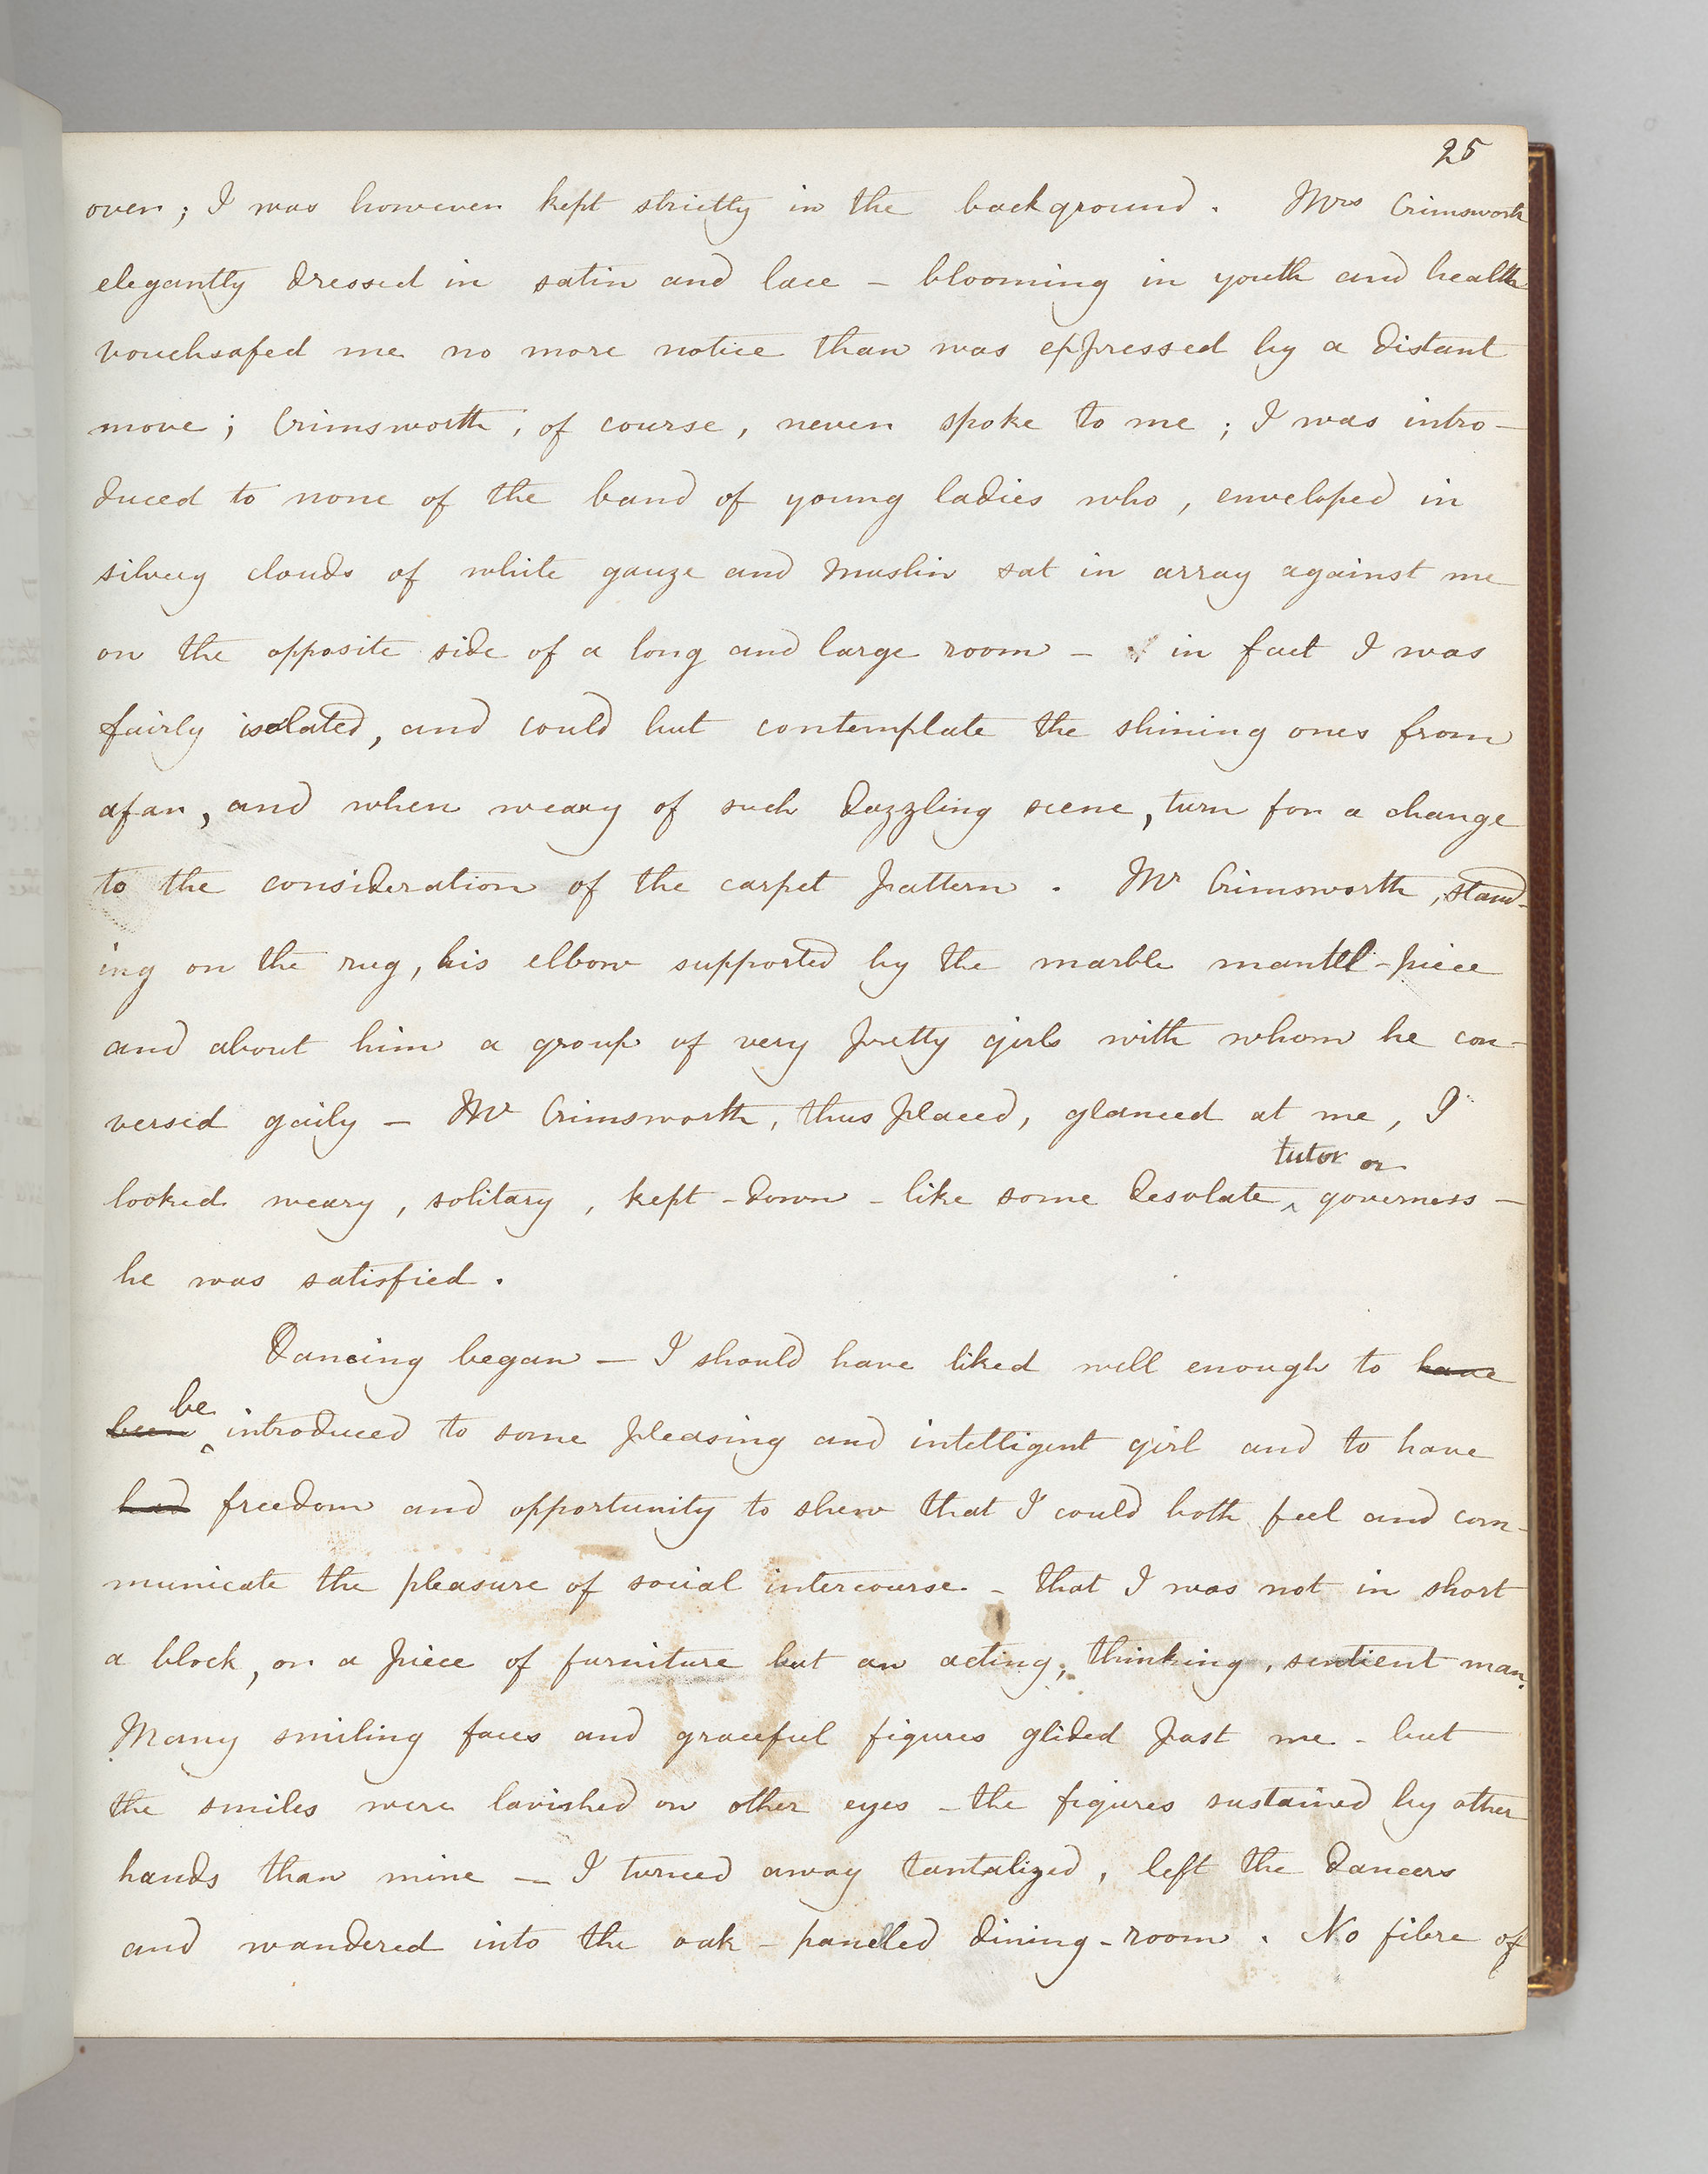 25
over; I was however kept strictly in the background. Mrs Crimsworth
elegantly dressed in satin and lace – blooming in youth and health
vouchsafed me no more notice than was expressed by a distant
move; Crimsworth, of course, never spoke to me; I was intro-
duced to none of the band of young ladies who, enveloped in
silvery clouds of white gauze and muslin sat in array against me
on the opposite side of a long and large room – in fact I was
fairly isolated, and could but contemplate the shining ones from
afar, and when weary of such dazzling scene, turn for a change
to the consideration of the carpet pattern. Mr Crimsworth, stand-
ing on the rug, his elbow supported by the marble mantel-piece
and about him a group of very pretty girls with whom he con-
versed gaily – Mr Crimsworth, thus placed, glanced at me, I
tutor or
looked weary, solitary, kept-down – like some desolate ^ governess –
he was satisfied.
Dancing began – I should have liked well enough to have
be
been ^ introduced to some pleasing and intelligent girl and to have
had freedom and opportunity to shew that I could both feel and com-
municate the pleasure of social intercourse – that I was not in short
a block, or a piece of furniture but an acting, thinking, sentient man.
Many smiling faces and graceful figures glided past me – but
the smiles were lavished on other eyes – the figures sustained by other
hands than mine – I turned away tantalized, left the dancers
and wandered into the oak-panelled dining-room. No fibre of